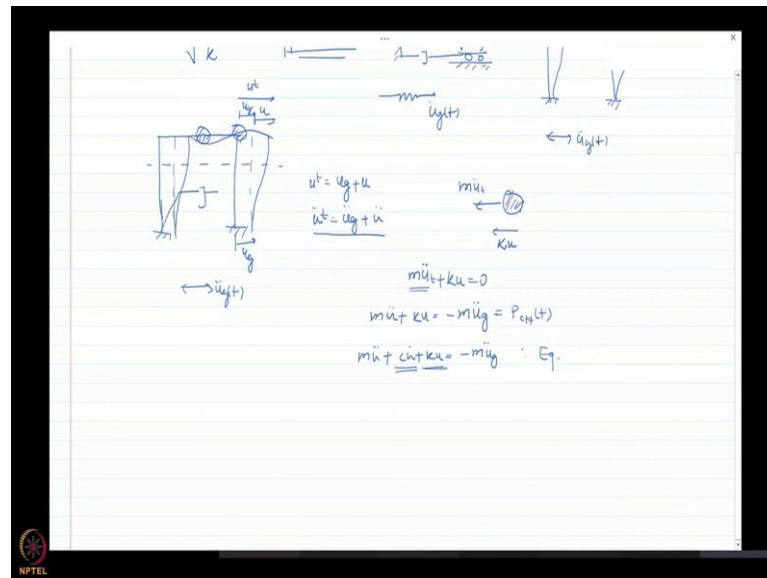 √ k
üg(t)
üg(t)
uᵗ
ug u
uᵗ = ug + u
üᵗ = üg + ü
müₜ
ku
ug
üg(t)
müₜ + ku = 0
mü + ku = -müg = Peff(t)
mü + cu̇ + ku = -müg : Eq.
NPTEL